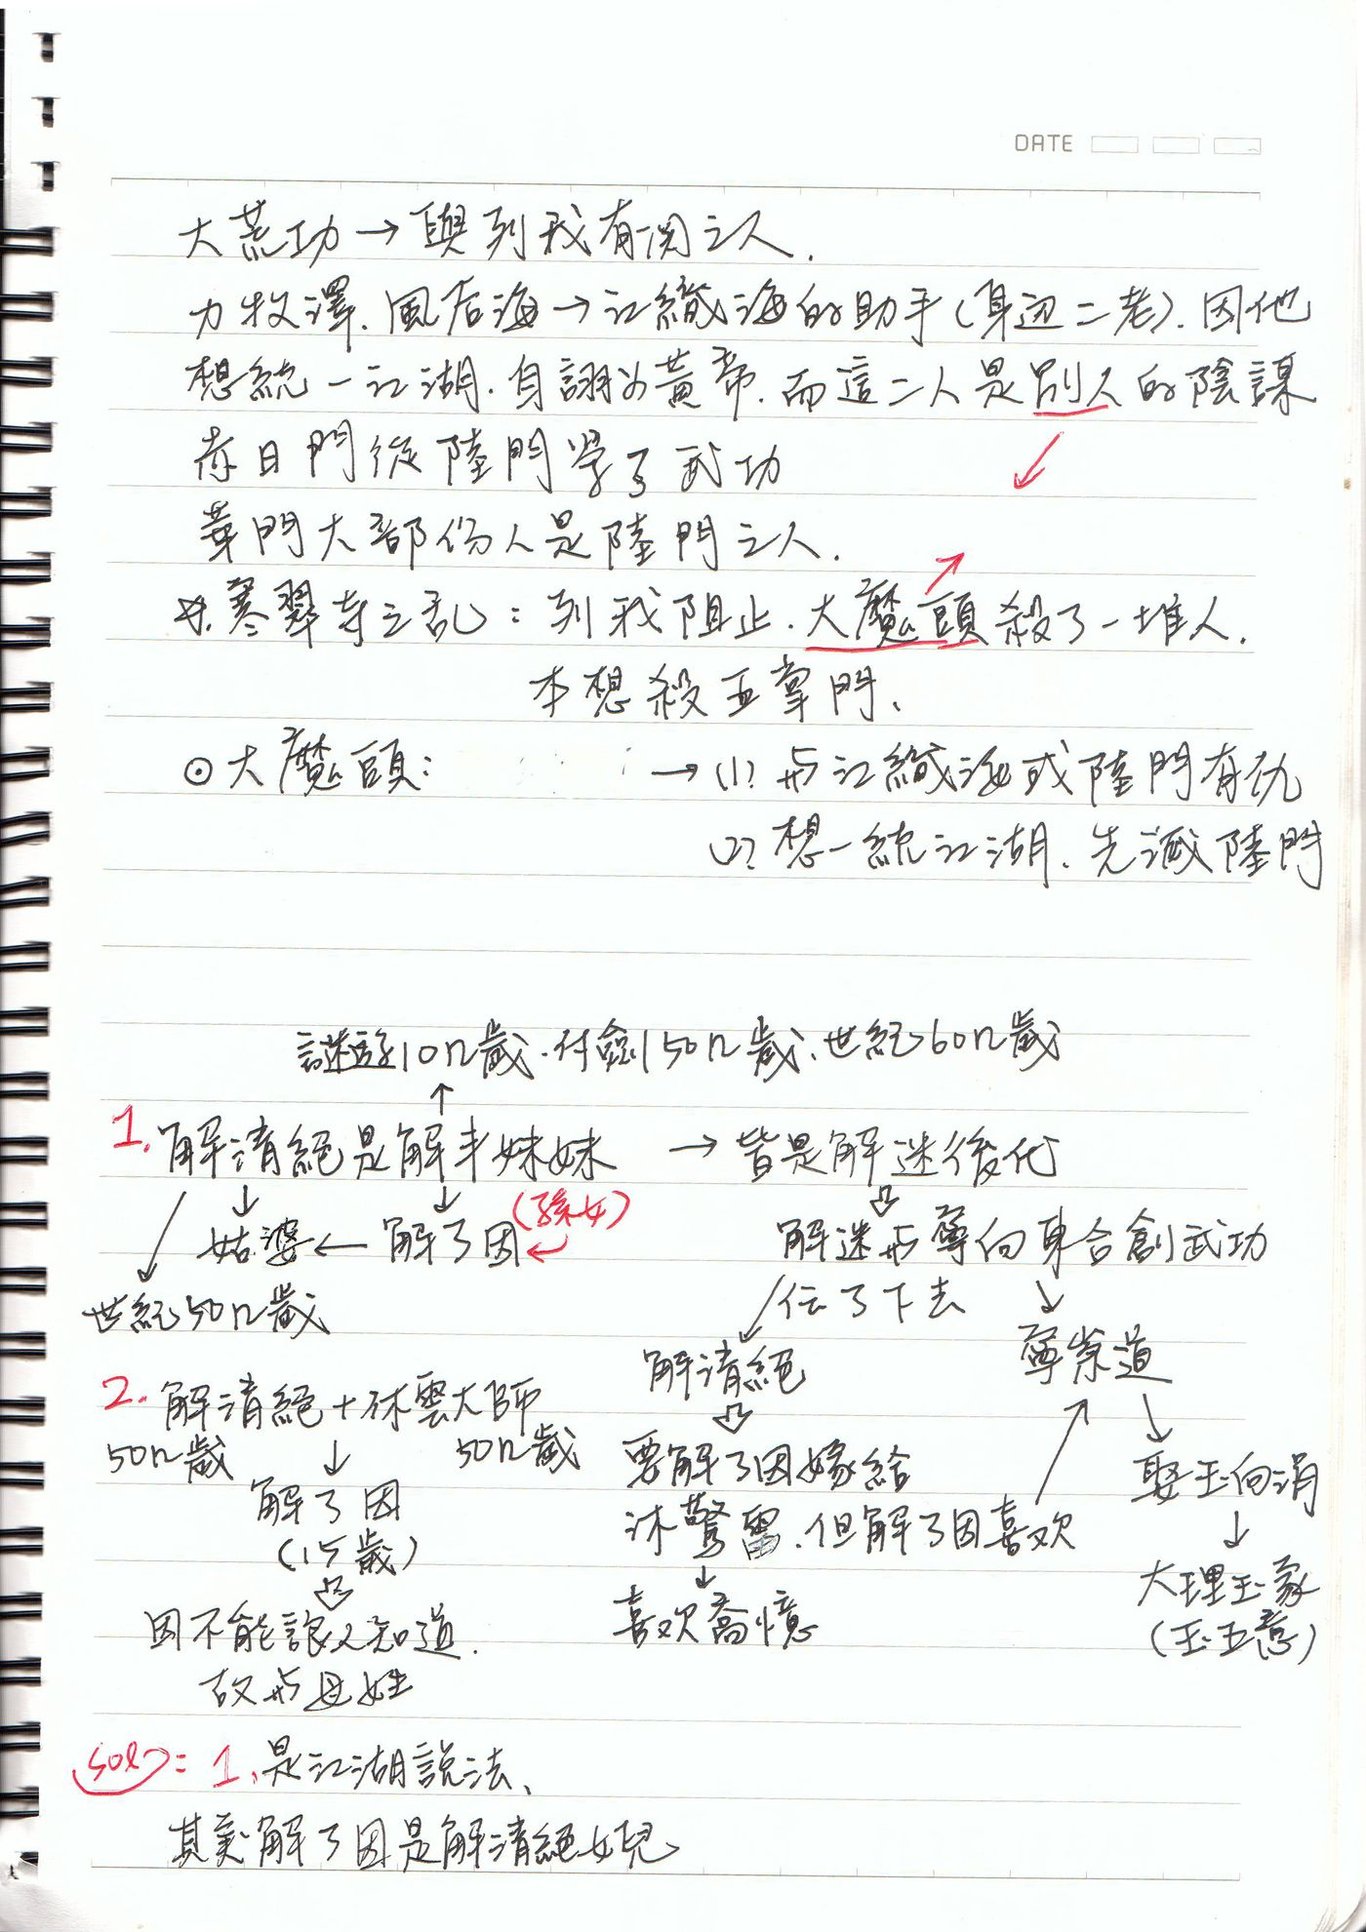 DATE
大荒功→與列我有関之人.
力牧澤.風后海→江織海的助手(身边二老).因他
想統一江湖.自詡為黃帝.而這二人是別人的陰謀
赤日門從陸門学了武功
華門大部份人是陸門之人.
*寒翠寺之乱:列我阻止.大魔頭殺了一堆人.
本想殺五掌門、
⊙大魔頭:→(1)?与江織海或陸門有仇
(2)?想一統江湖.先滅陸門
10几歲.50几歲、世紀60几歲
↑
1.解清絕是解丰妹妹→皆是解迷後代
姑婆←解了因(孫女)
解迷与尊向東合創武功
世紀50几歲
伝了下去
解清絕
尊崇道
2.解清絕+休雲大師
50几歲 50几歲
要解了因嫁給
娶玉向涓
解了因
沐驚畱.但解了因喜欢
(15歲)
大理玉家
喜欢喬憶
(玉五意)
因不能讓人知道.
故与母姓
sol:1.是江湖說法、
其実解了因是解清絕女兒